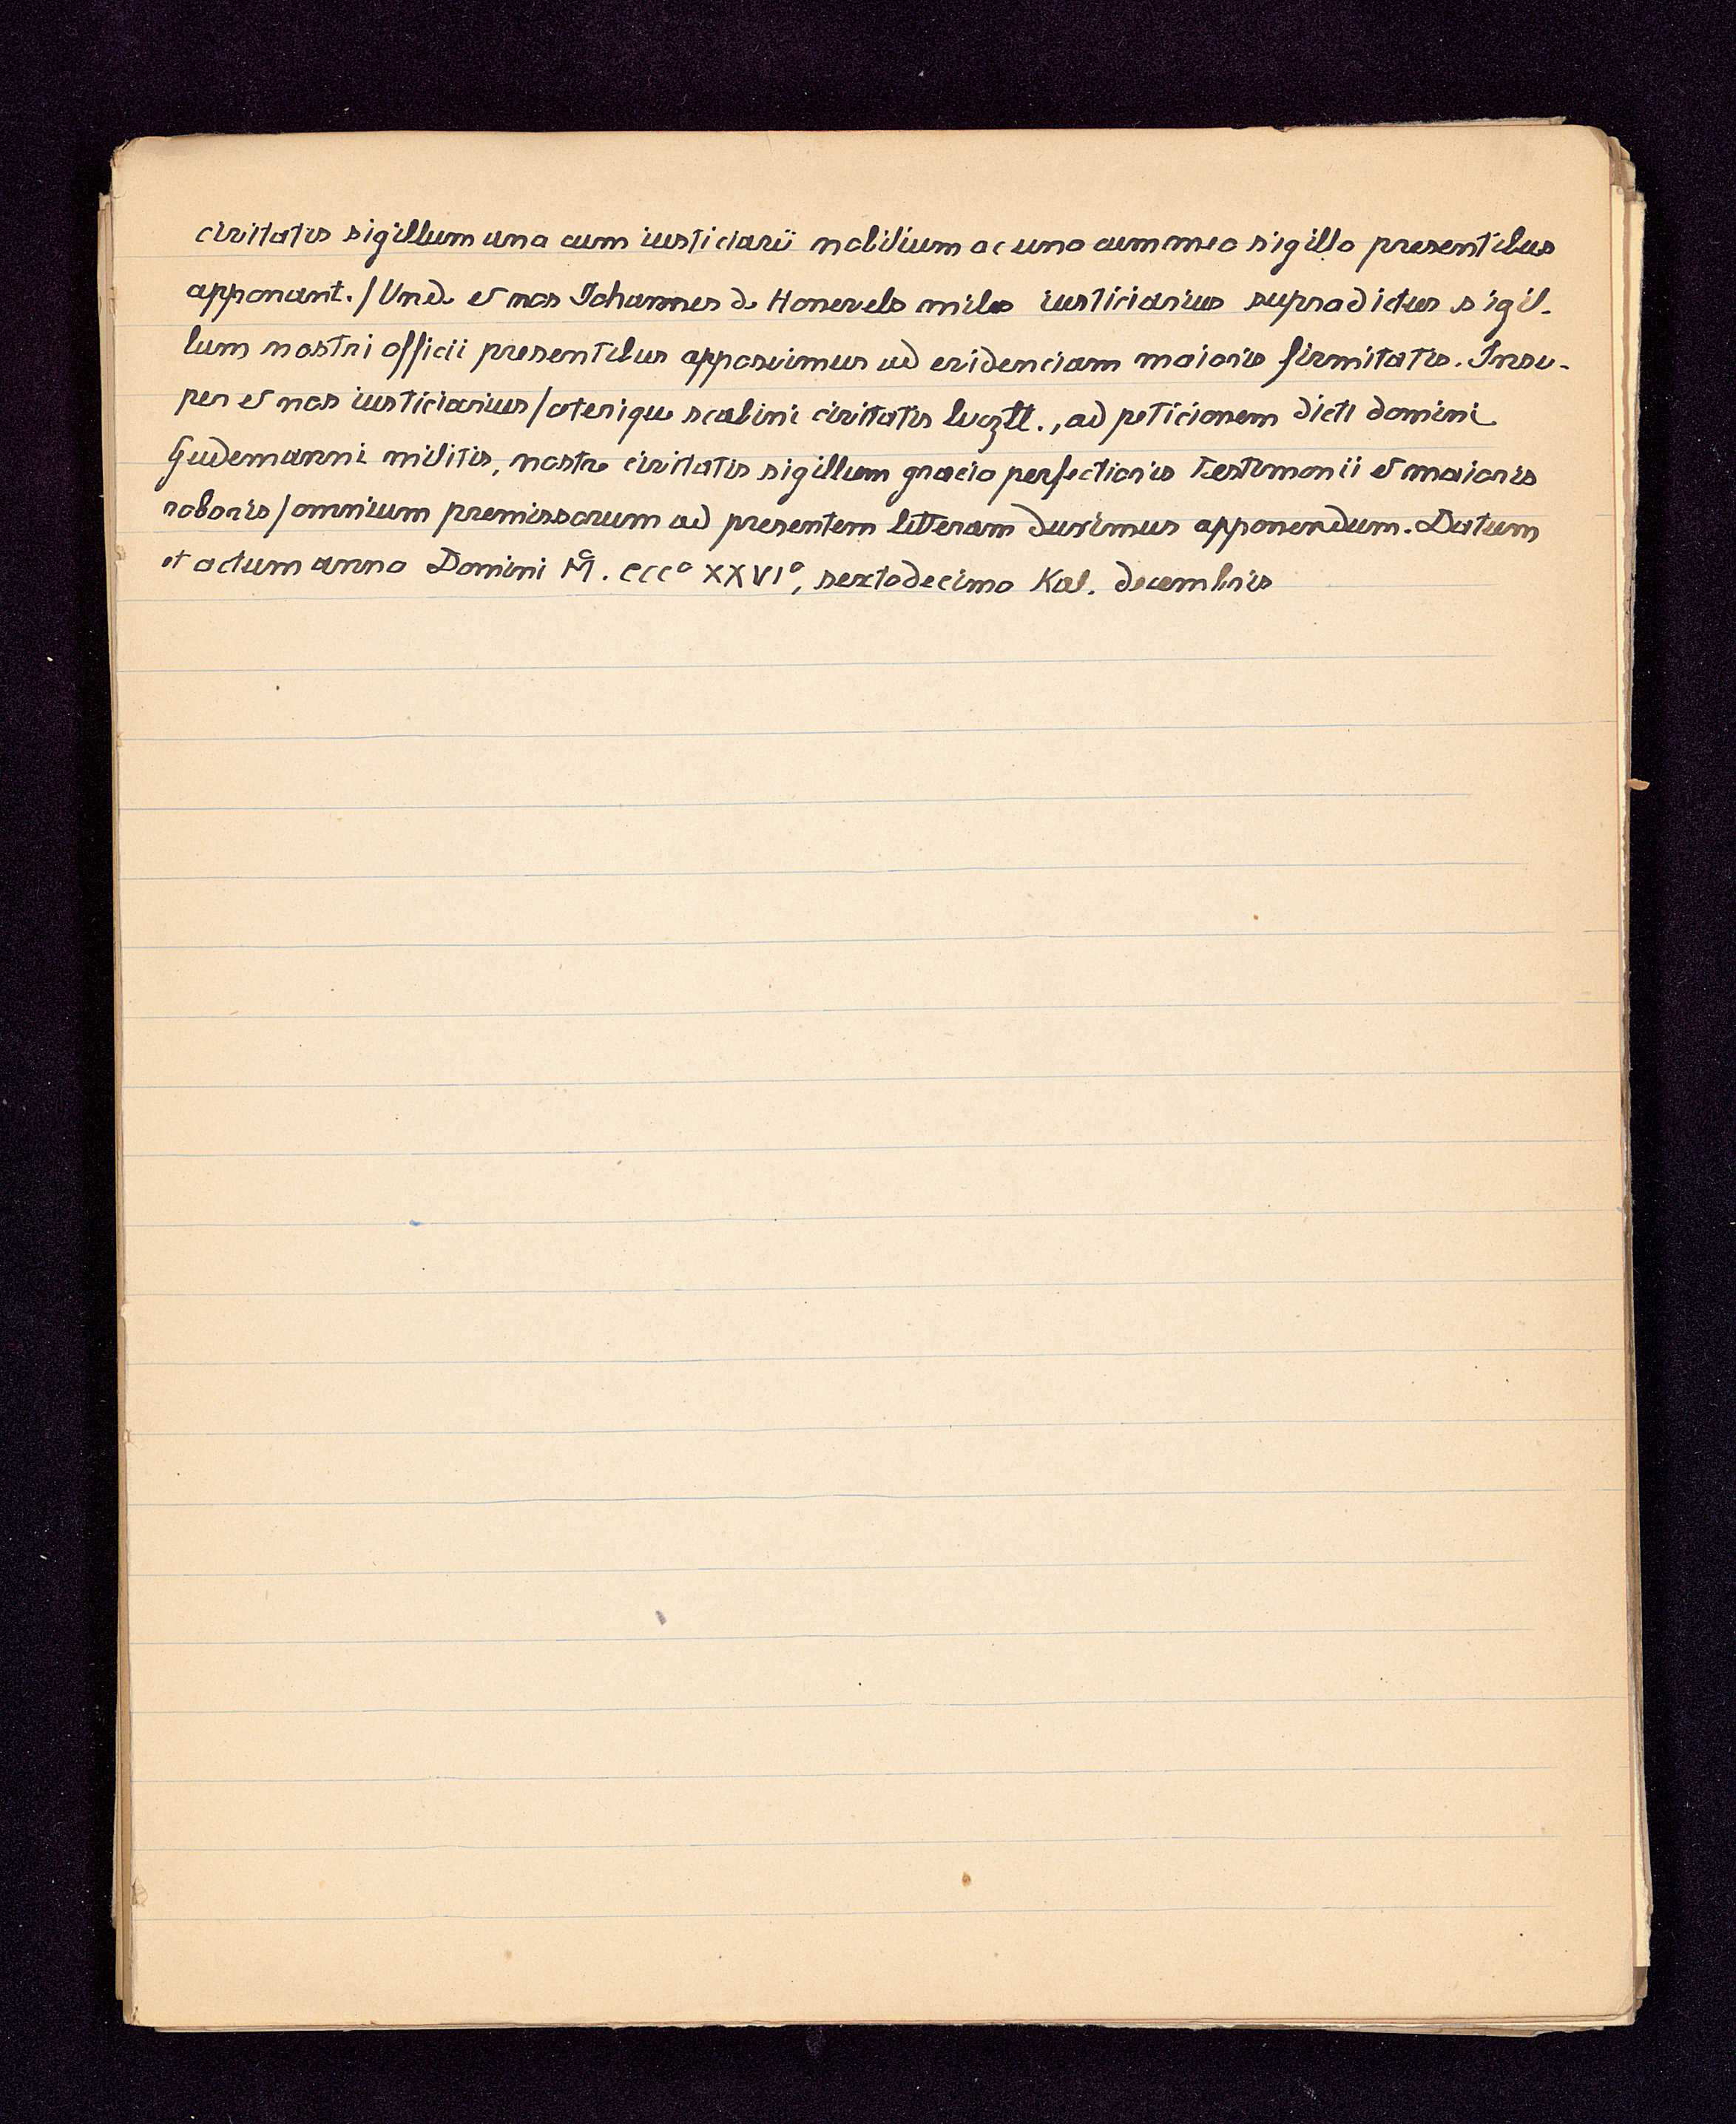 civitatis sigillum una cum iusticiarii nobilium ac una cum meo sigillo presentibus
apponant. / Unde et nos Johannes de Honevels miles iusticiarius supradictus sigil-
lum nostri officii presentibus apposuimus ad evidenciam maioris firmitatis. Insu-
per et nos iusticiarius / ceterique scabini civitatis luczll., ad peticionem dicti domini
Gudemanni militis, nostre civitatis sigillum gracia perfectioris testimonii et maioris
roboris / omnium premissorum ad presentem litteram duximus apponendum. Datum
et actum anno Domini M°. CCC° XXVI°, sextodecimo Kal. decembris